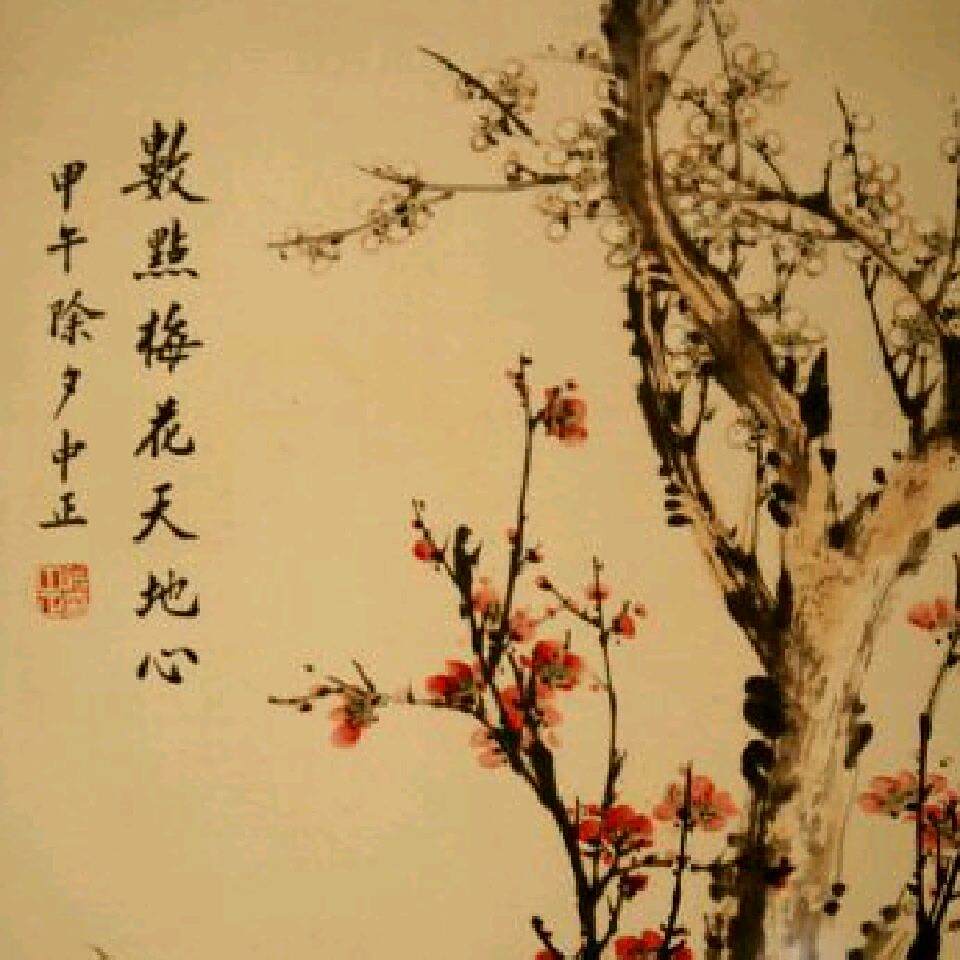 數點梅花天地心
甲午除夕中正